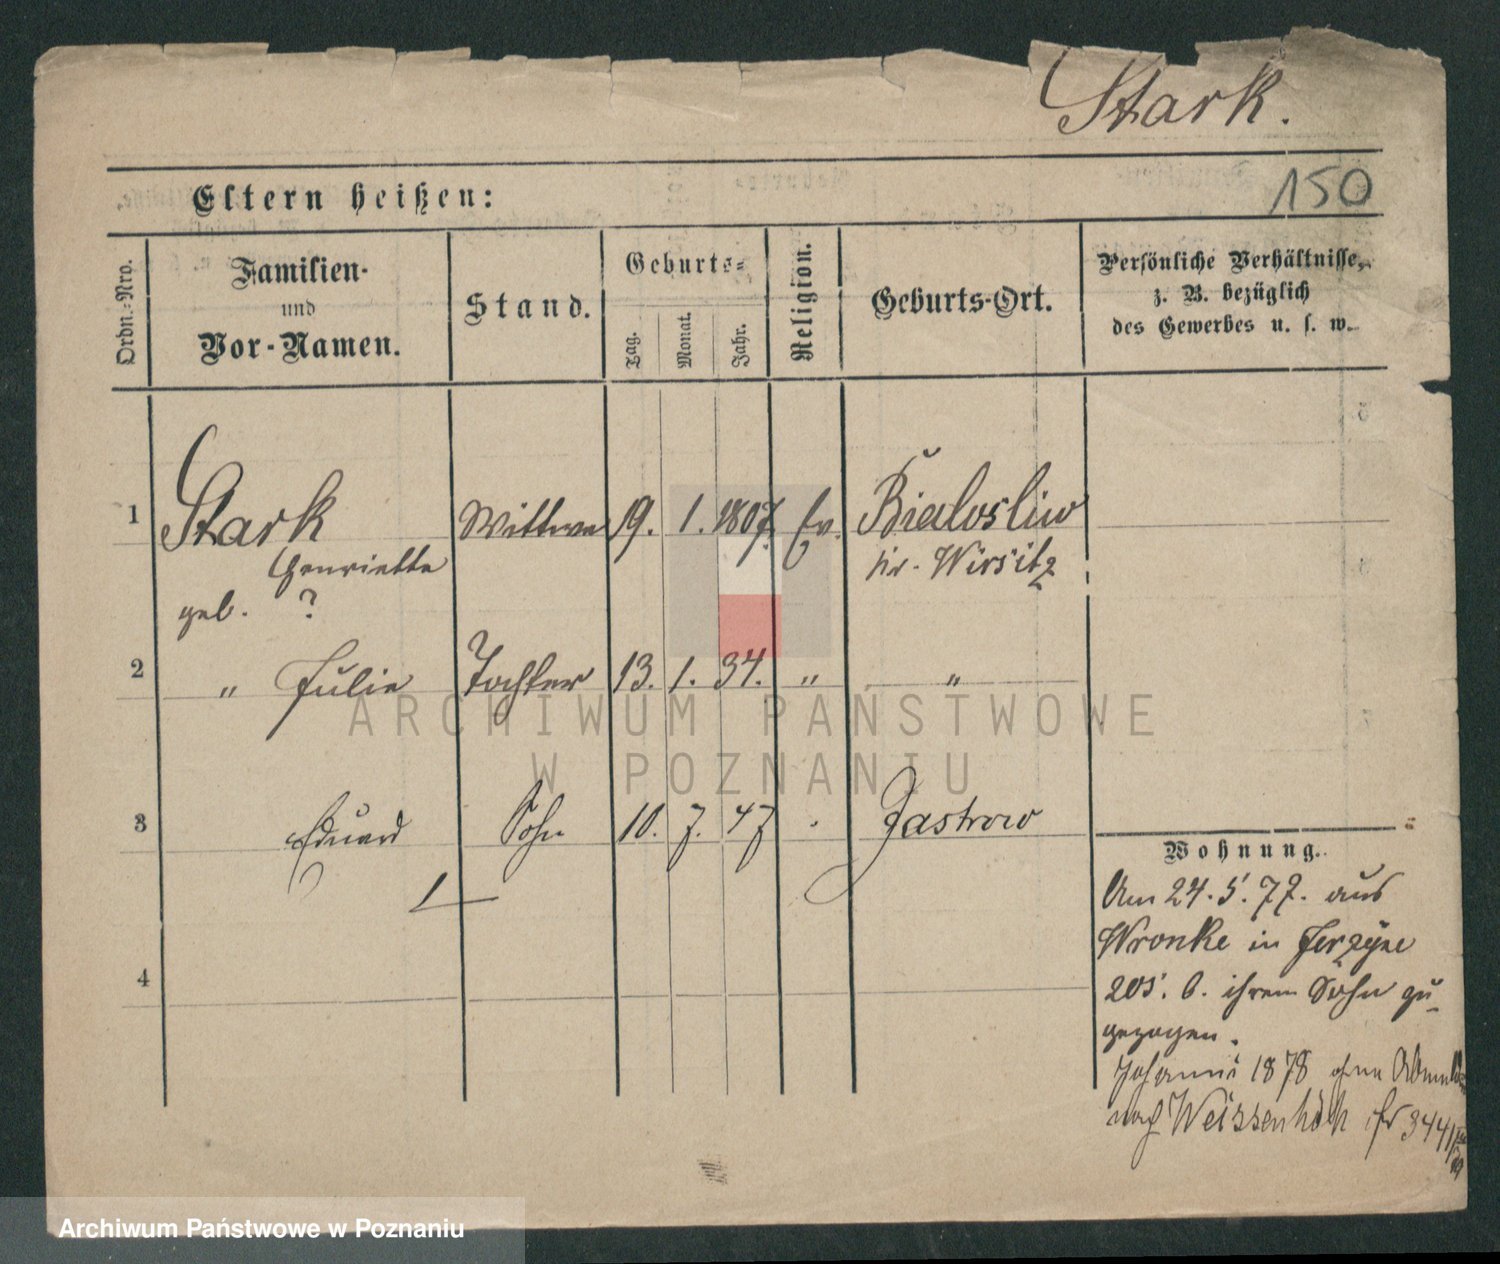 Stark.
150
Eltern heißen:
Ordn.-Nro.
Familien-
und
Vor-Namen.
Stand.
Geburts-
Tag.
Monat.
Jahr.
Religion.
Geburts-Ort.
Persönliche Verhältnisse,
z. B. bezüglich
des Gewerbes u. s. w.
1 Stark Wittwe 19. 1. 1807. Ev. Bialosliw
Henriette kr. Wirsitz
geb. ?
2 " Julie Tochter 13. 1. 34. " "
ARCHIWUM PAŃSTWOWE
W POZNANIU
3 Eduard Sohn 10. 7. 47 . Jastrow
Wohnung.
Am 24. 5. 77. aus
Wronke in Jerzyce
205. b. ihrem Sohn zu-
gezogen.
Johanni 1878 ohne
nach Weissenhöh
4
Archiwum Państwowe w Poznaniu